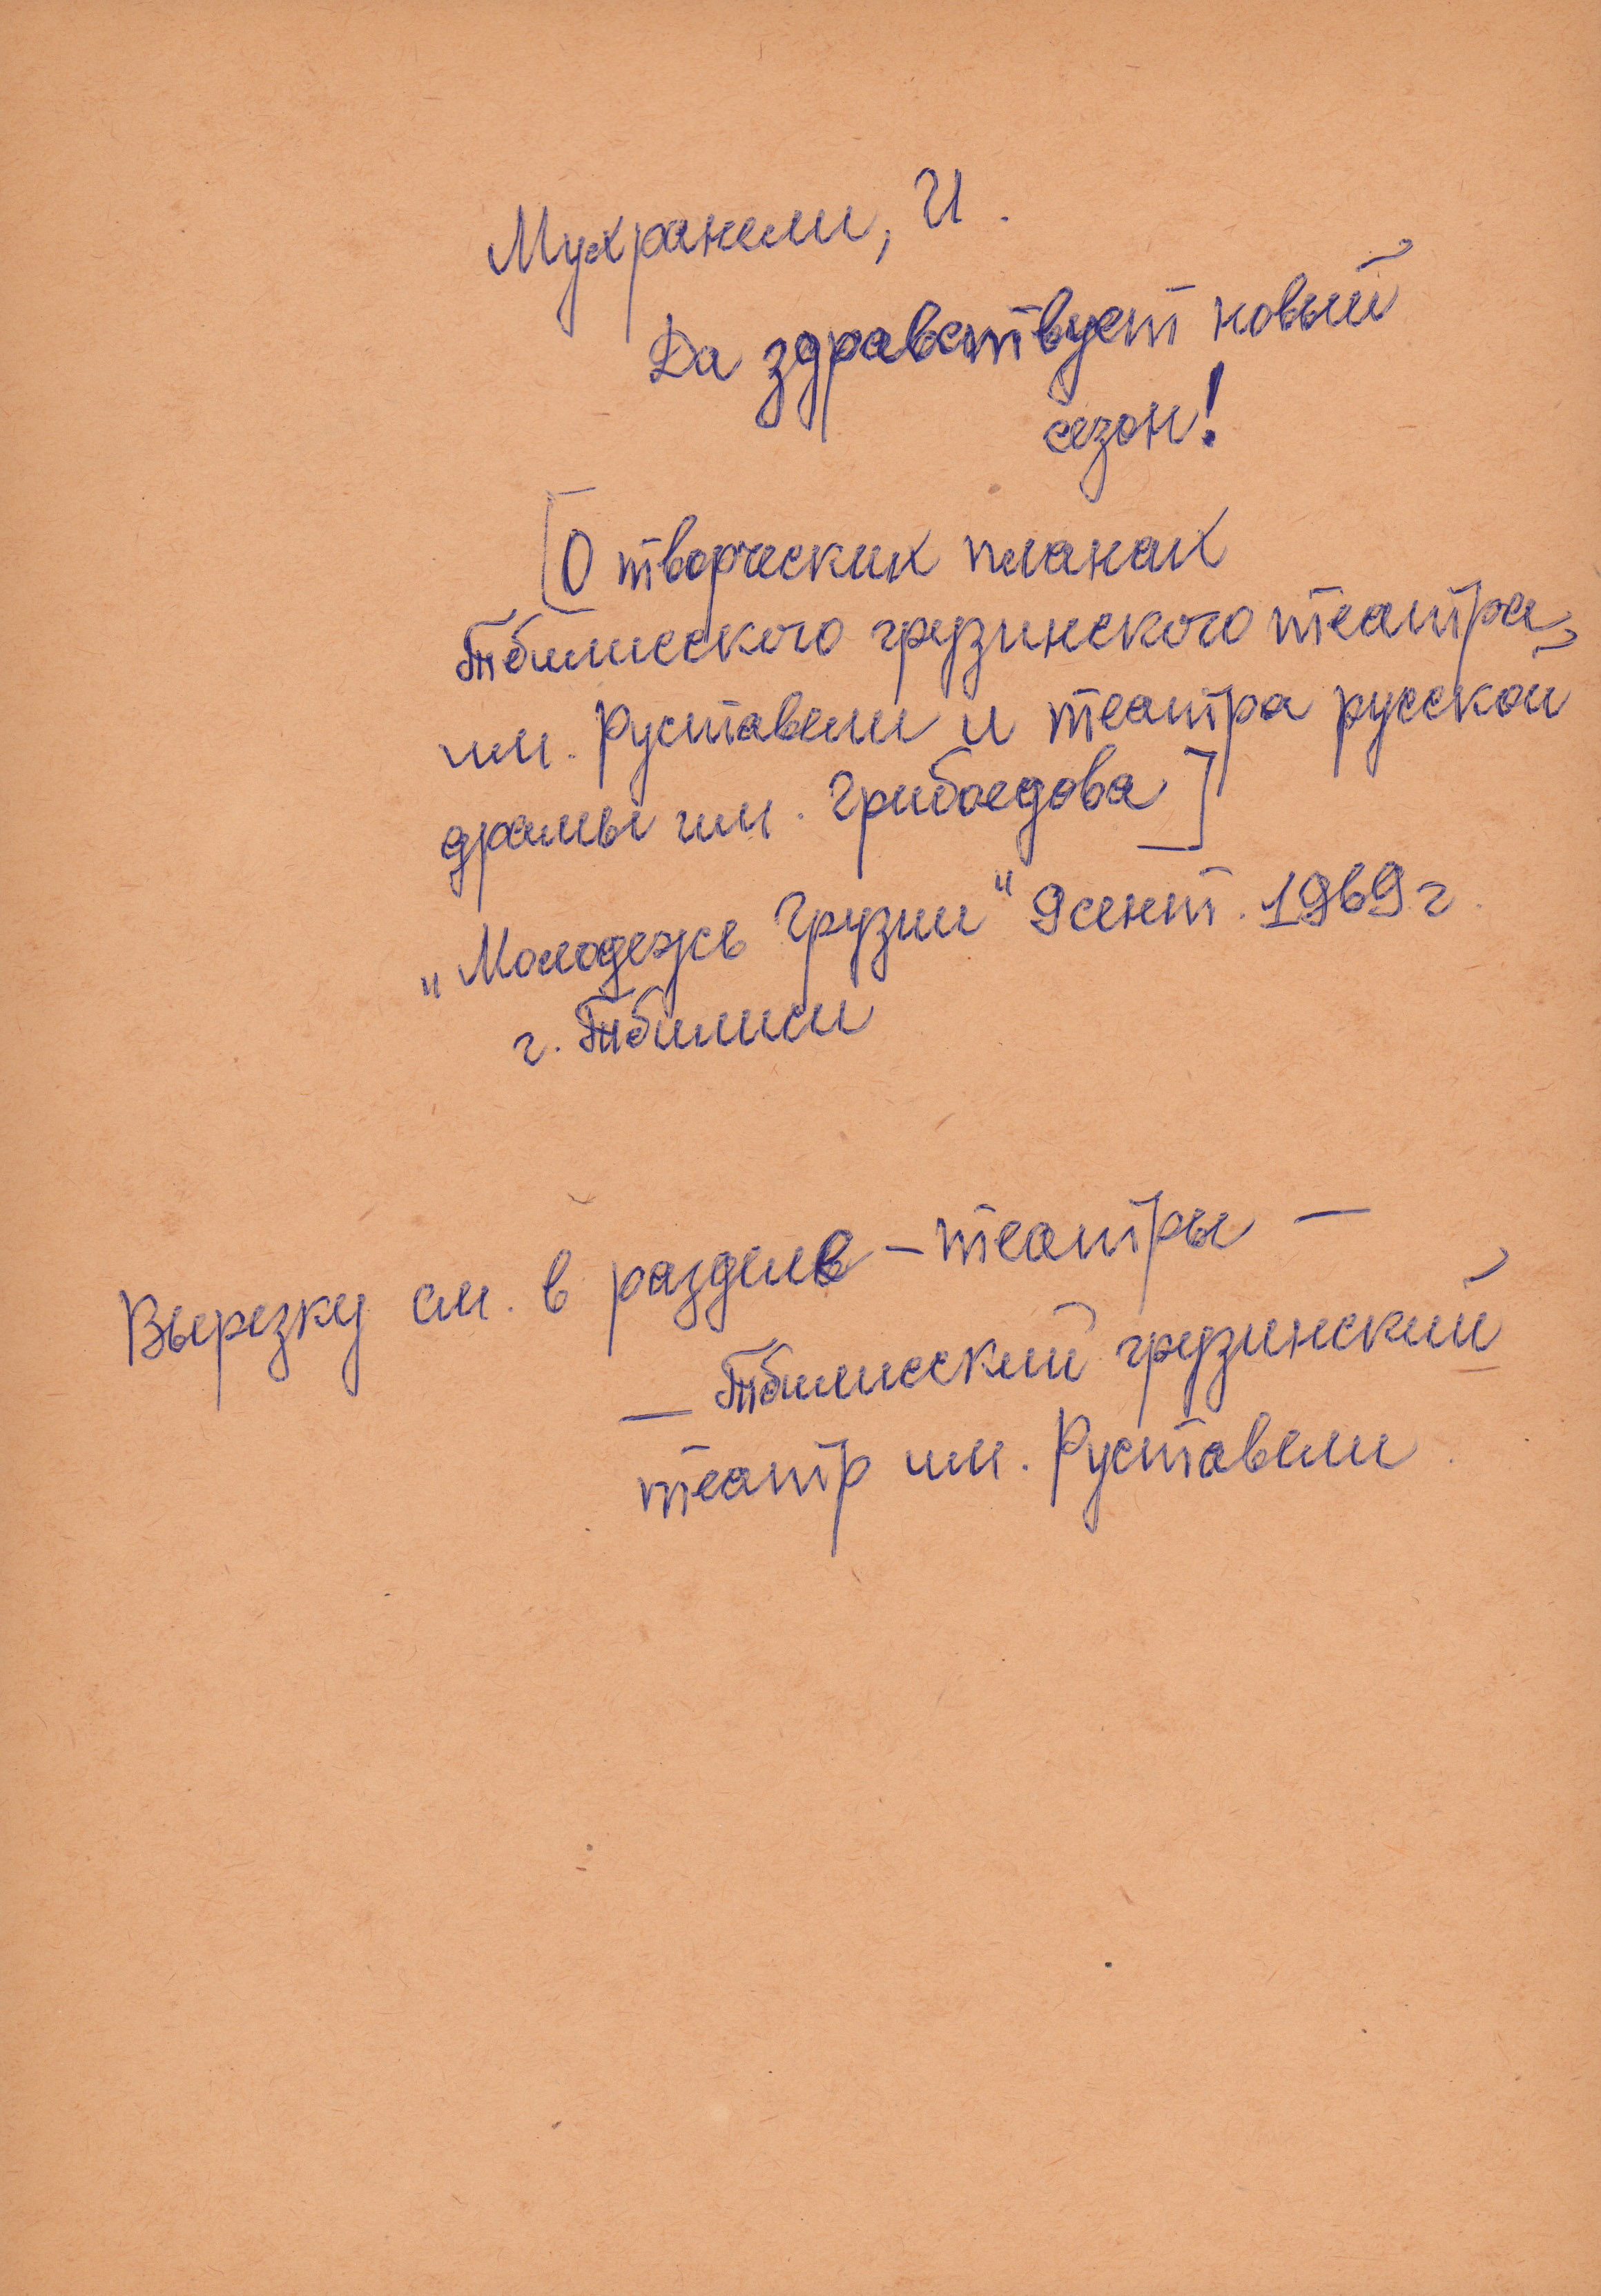 Мухранели, И.
Да здравствует новый
сезон!
[О творческих планах
Тбилисского грузинского театра
им. Руставели и театра русской
драмы им. Грибоедова]
"Молодежь Грузии" 9 сент. 1969 г.
г. Тбилиси
Вырезку см. в разделе - театры -
- Тбилисский грузинский
театр им. Руставели.